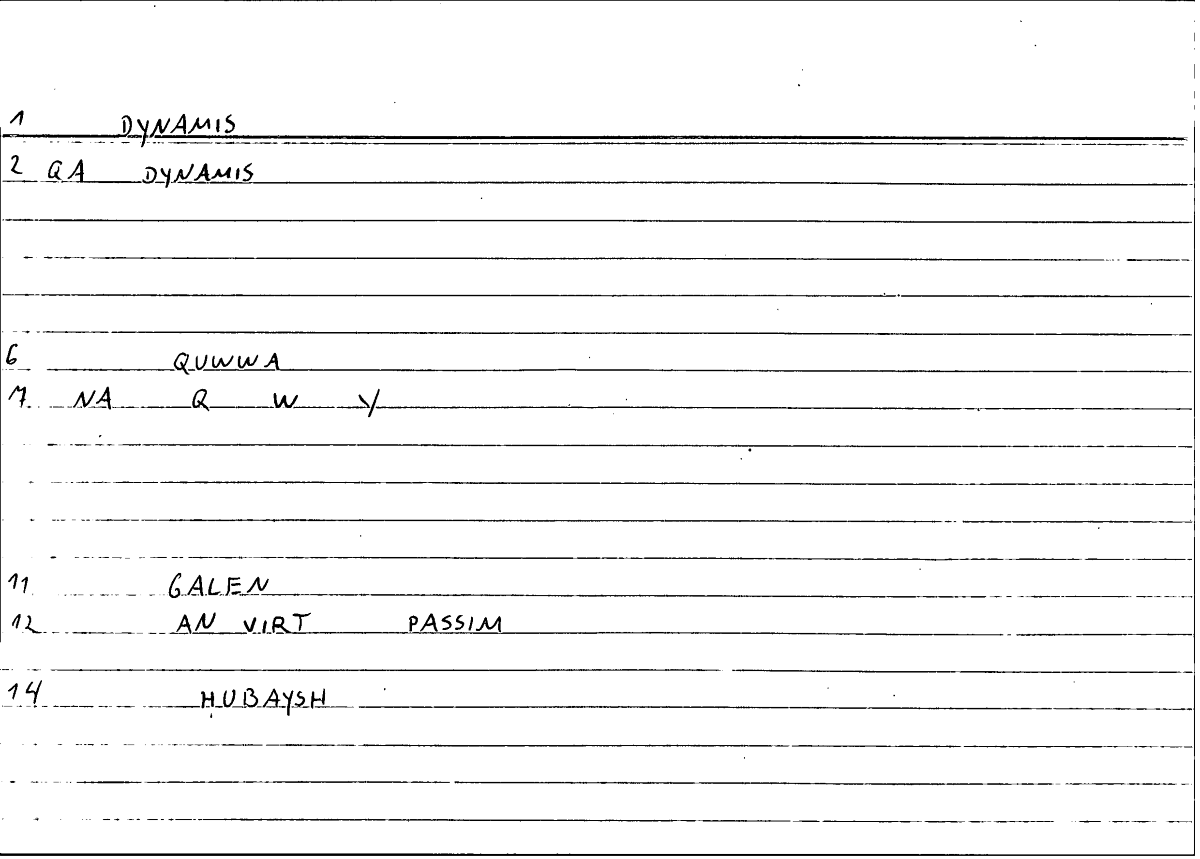 1 DYNAMIS
2 QA DYNAMIS
6 QUWWA
7. NA Q W Y
11 GALEN
12 AN VIRT PASSIM
14 HUBAYSH